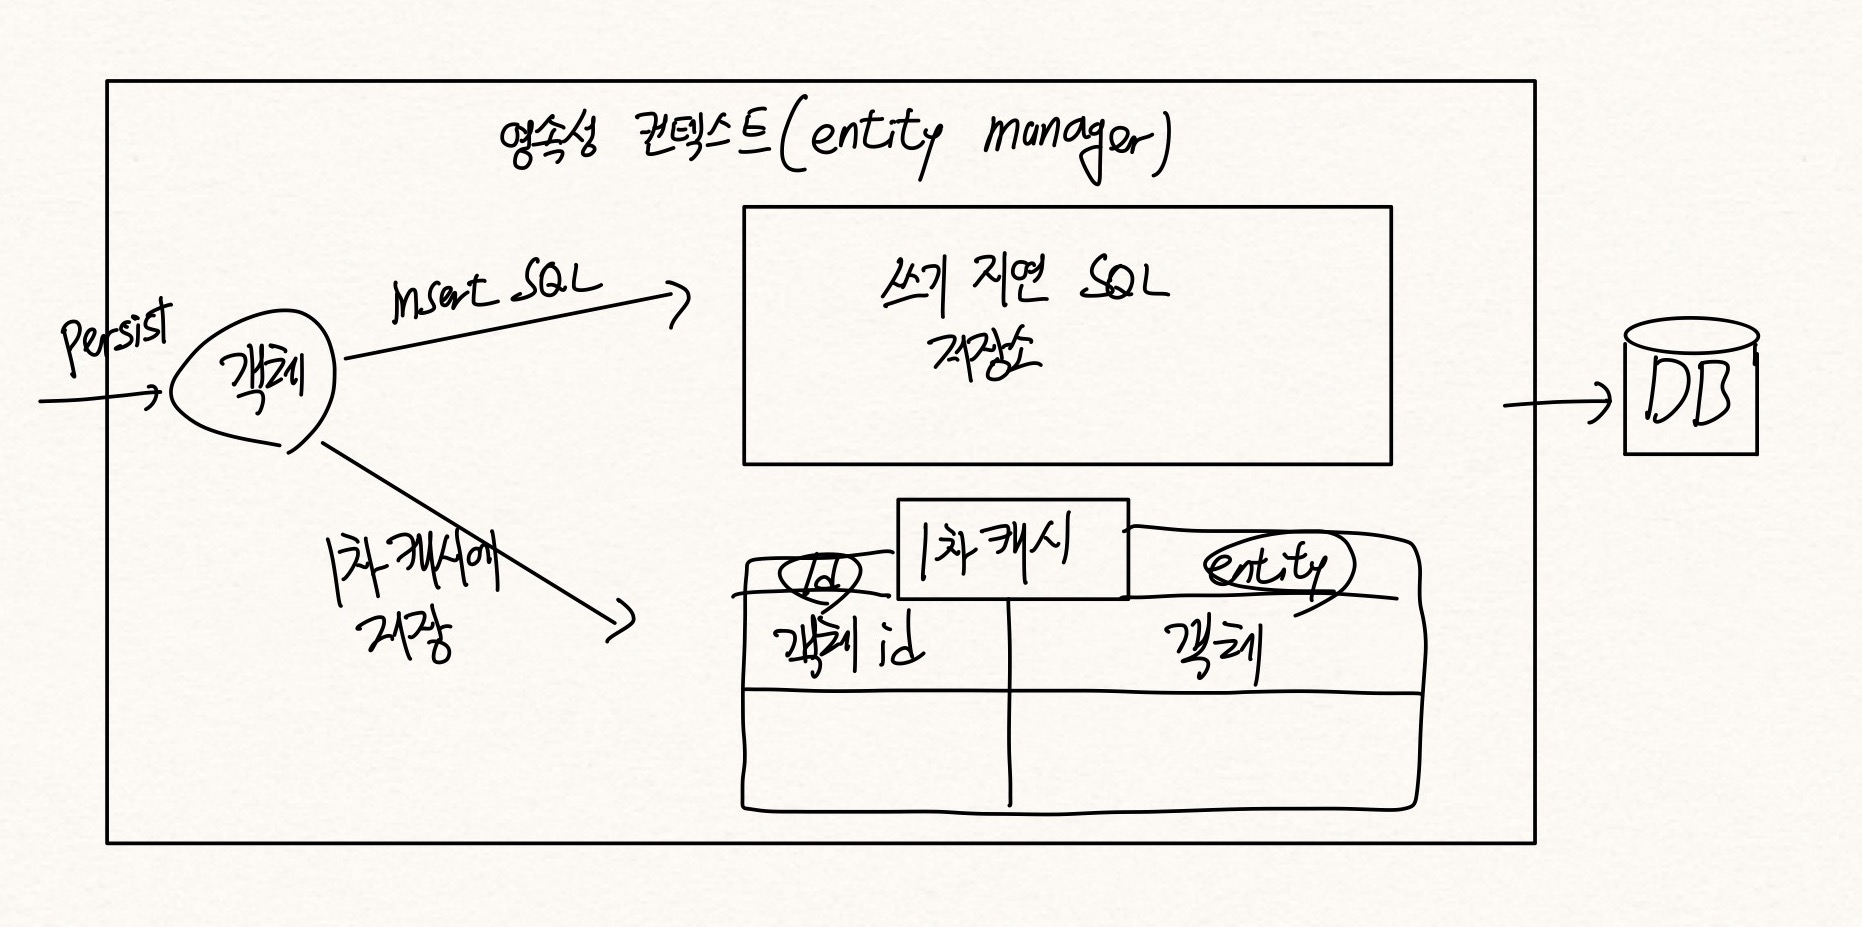 영속성 컨텍스트(entity manager)
Persist
객체
Insert SQL
쓰기 지연 SQL
저장소
DB
1차 캐시에
저장
1차 캐시
id
entity
객체 id
객체